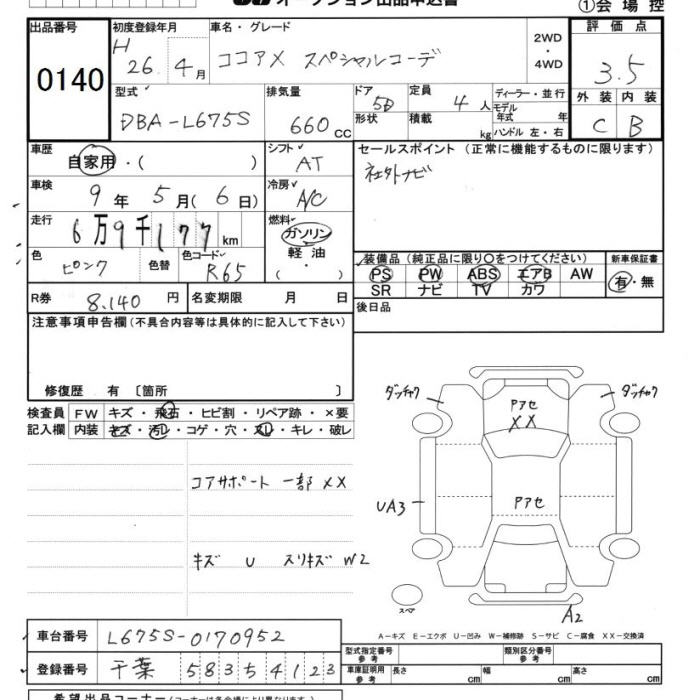 オークション出品申込書
①会場控
出品番号
0140
初度登録年月
H 26年 4月
車名・グレード
ココアX スペシャルコーデ
2WD
・
4WD
評価点
3.5
外装 内装
C B
型式
DBA-L675S
排気量
660 cc
ドア 5D
形状
定員 4人
積載 kg
ディーラー・並行
モデル年式 年
ハンドル 左・右
車歴
自家用・( )
シフト
AT
セールスポイント (正常に機能するものに限ります)
社外ナビ
車検
9年 5月(6日)
冷房
A/C
走行
6万9千177km
燃料
ガソリン
軽油
・
( )
色
ピンク
色替
色コード
R65
装備品 (純正品に限り〇をつけてください)
PS PW ABS エアB AW
SR ナビ TV カワ
新車保証書
有・無
R券 8,140円
名変期限 月 日
後日品
注意事項申告欄 (不具合内容等は具体的に記入して下さい)
修復歴 有 〔箇所 〕
検査員 FW キズ・飛石・ヒビ割・リペア跡・×要
記入欄 内装 キズ・汚レ・コゲ・穴・スレ・キレ・破レ
コアサポート 一部 XX
キズ U スリキズ W2
ダッチャク
ダッチャク
Pアセ
XX
UA3
Pアセ
スペア
A2
A-キズ E-エクボ U-凹み W-補修跡 S-サビ C-腐食 XX-交換済
車台番号
L675S-0170952
登録番号
千葉 583 5 4123
型式指定番号 参考
類別区分番号 参考
車庫証明用 参考
長さ cm
幅 cm
高さ cm
希望出品コーナー (コーナーは各会場により異なります。)